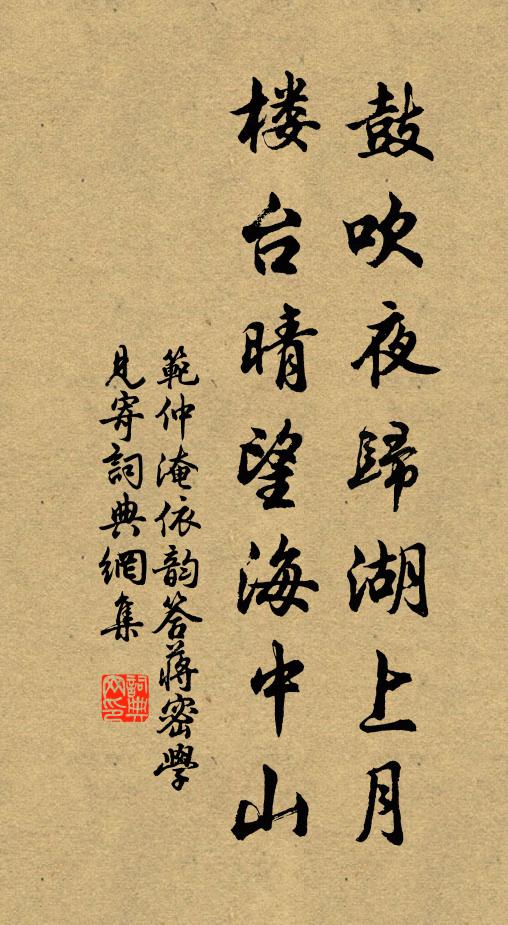 鼓吹夜歸湖上月
楼台晴望海中山
範仲淹依韵答蒋密學
見寄詞典網集
詞典